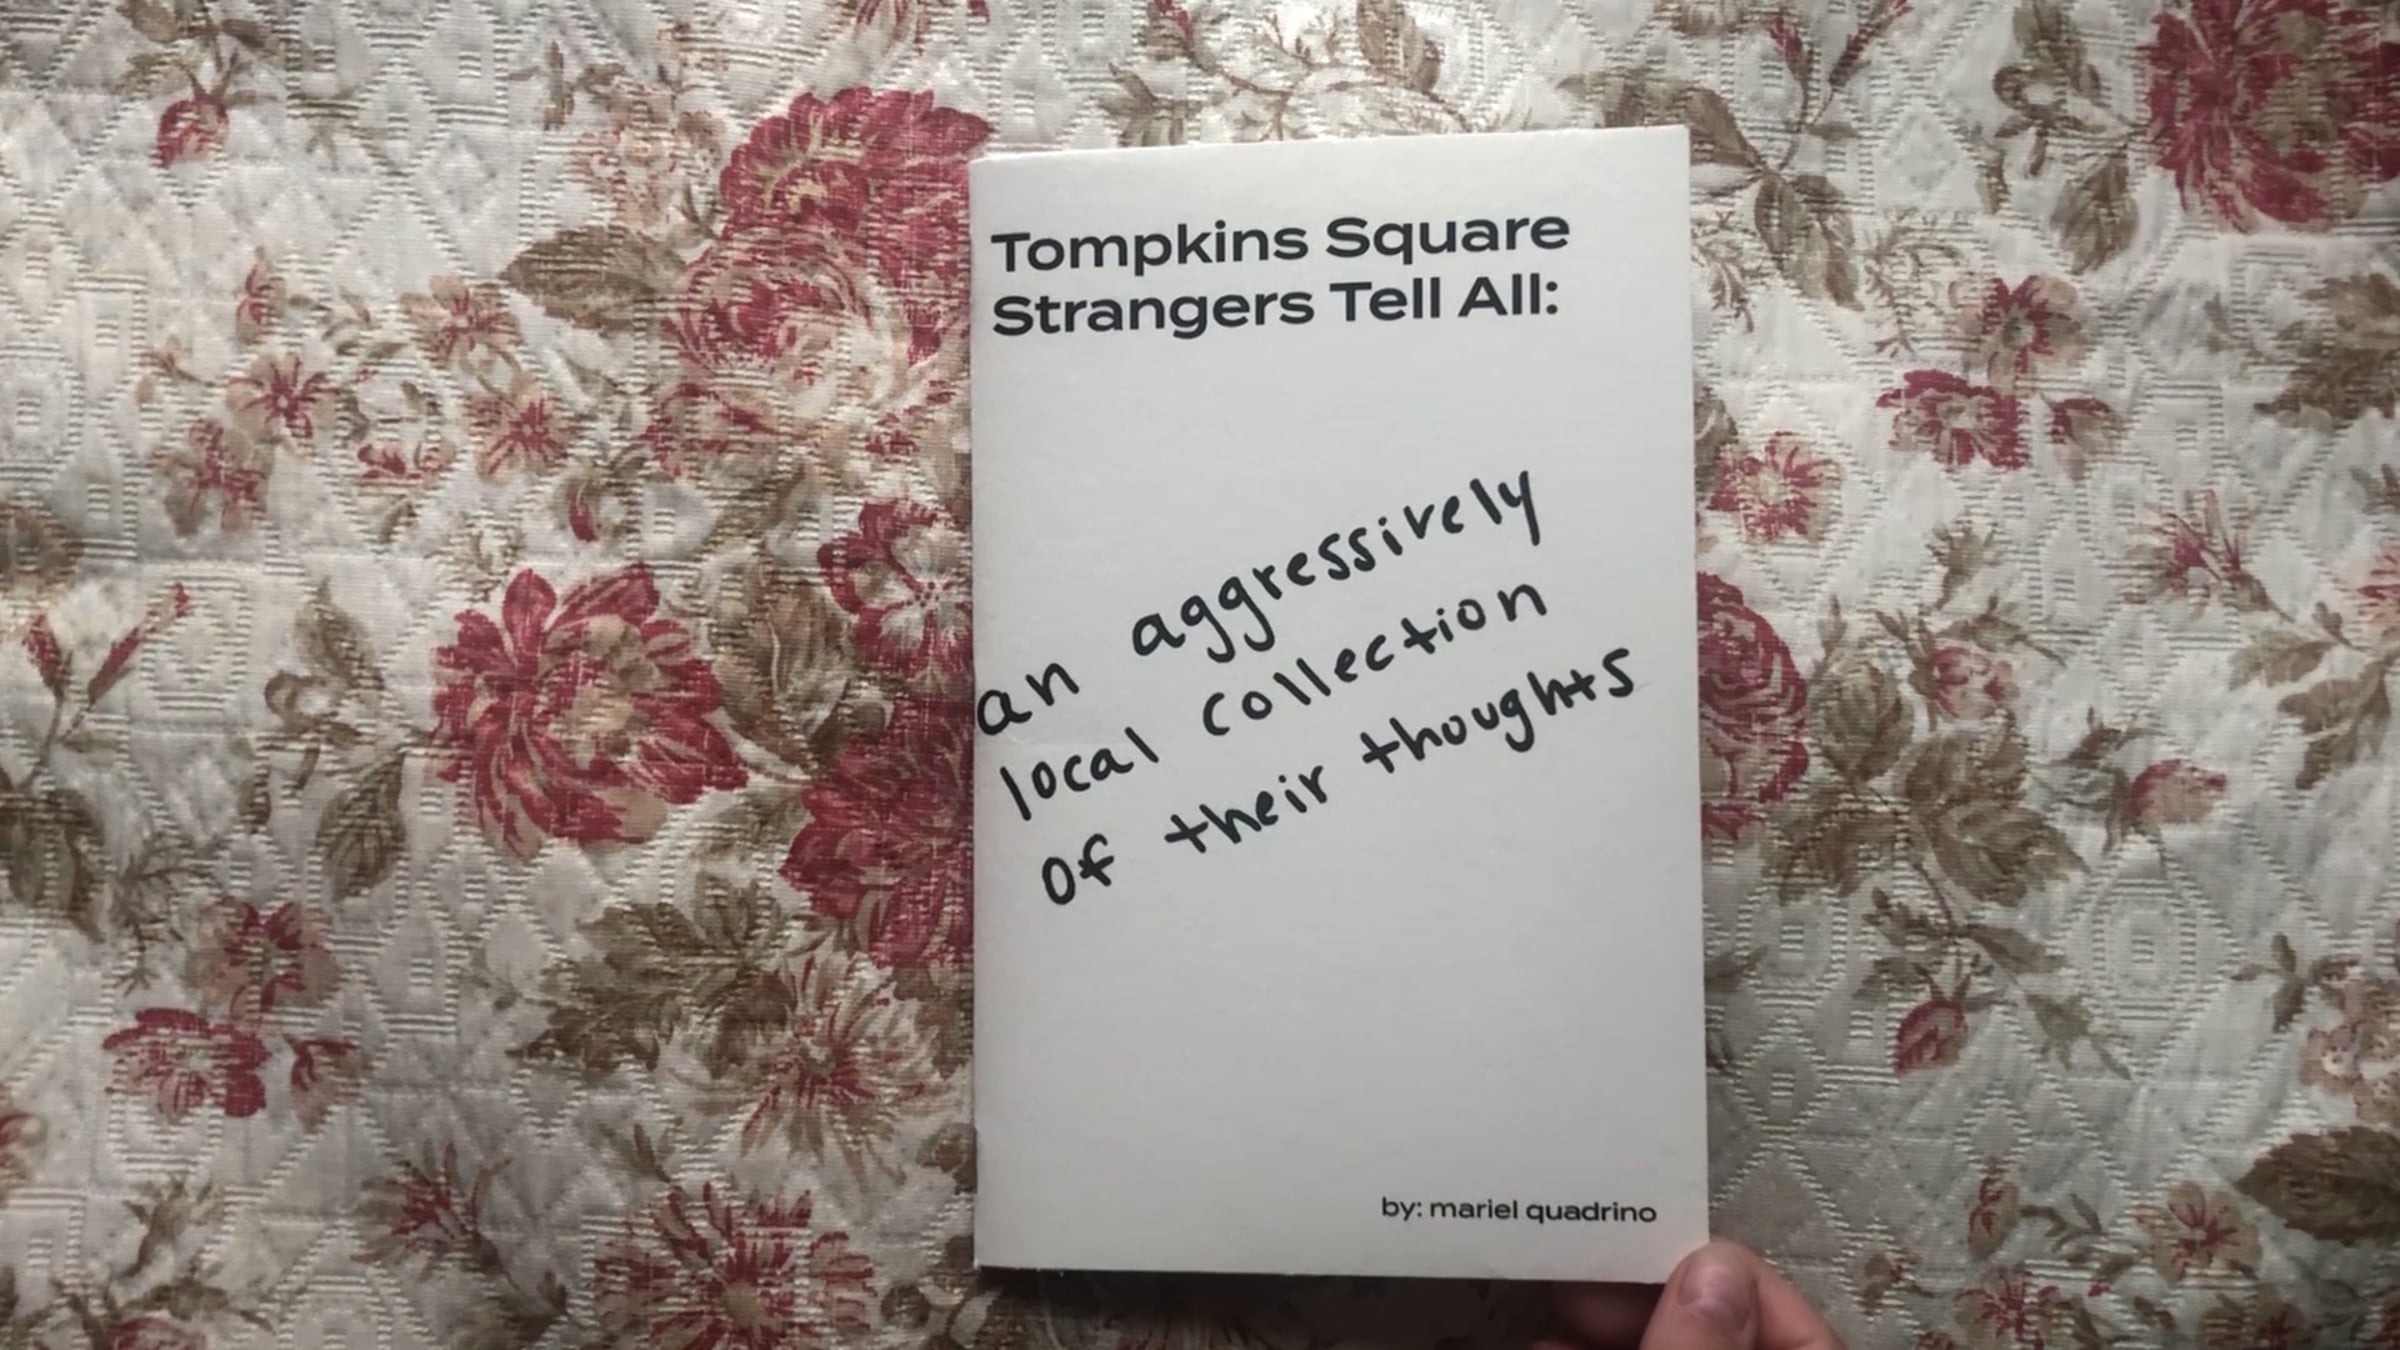 Tompkins Square
Strangers Tell All:
an aggressively
local collection
of their thoughts
by: mariel quadrino